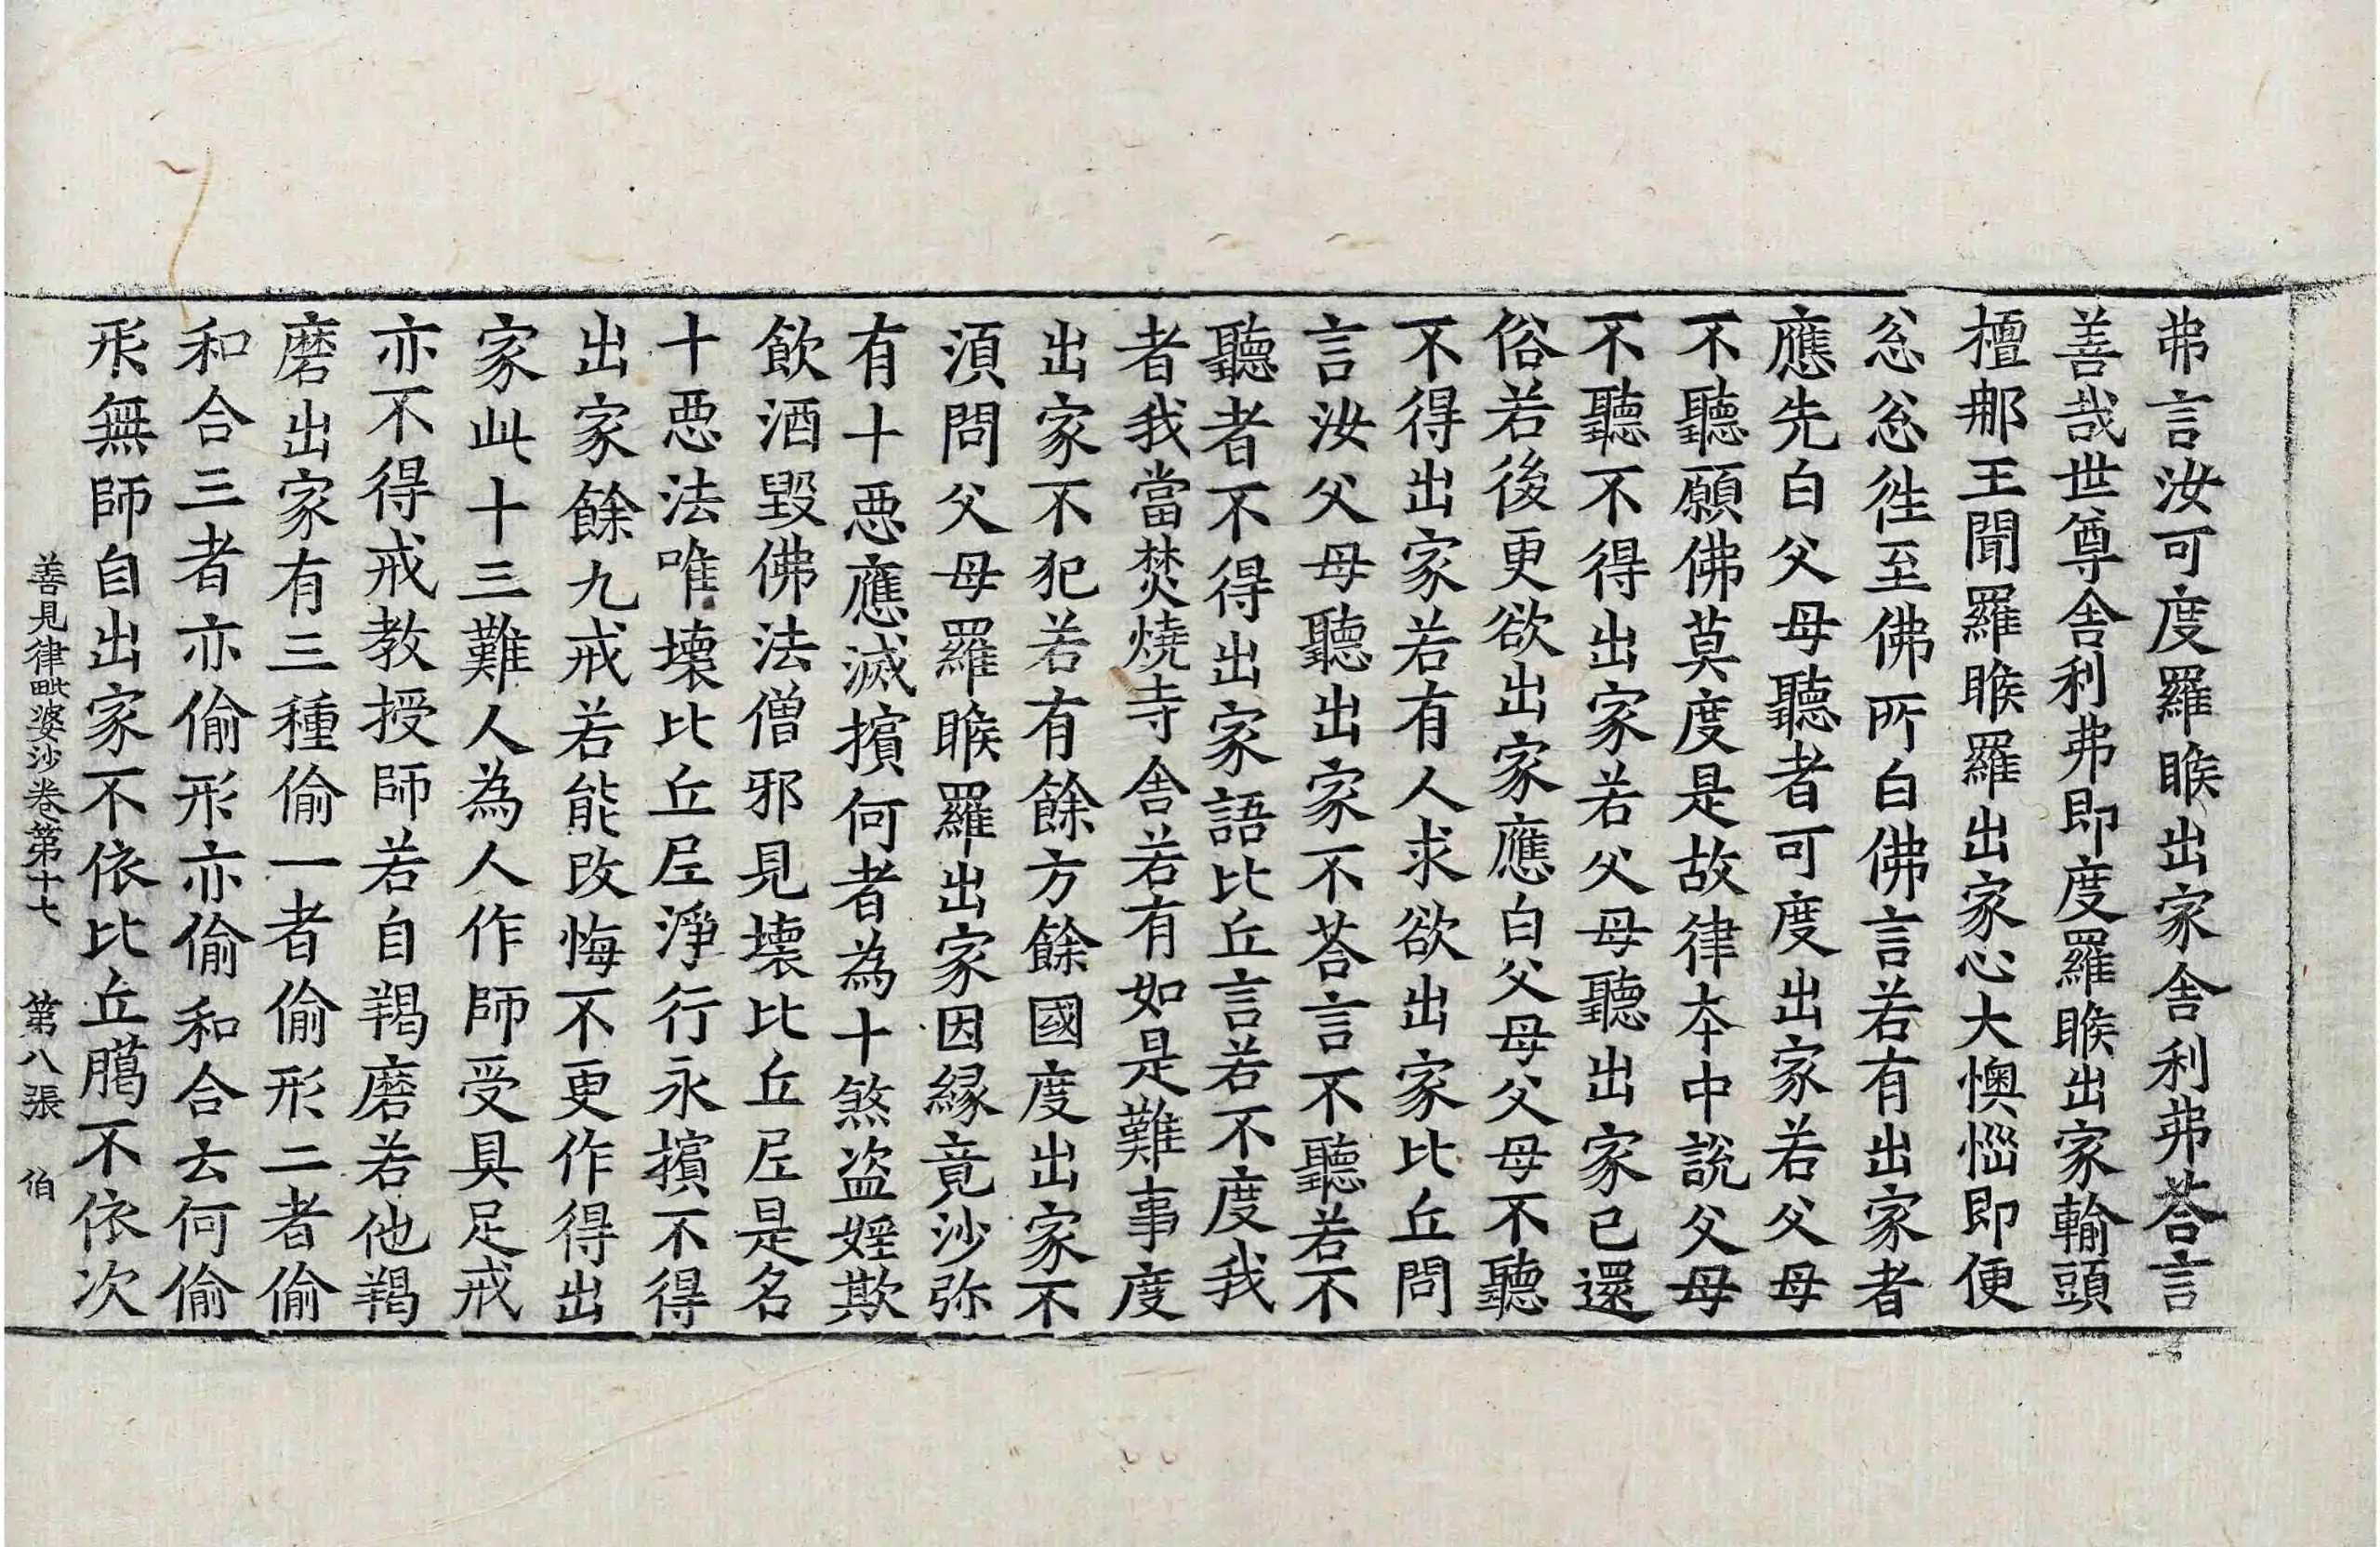 弗言汝可度羅睺出家舍利弗荅言
善哉世尊舍利弗即度羅睺出家輸頭
檀那王聞羅睺羅出家心大懊惱即便
忩忩徃至佛所白佛言若有出家者
應先白父母聽者可度出家若父母
不聽願佛莫度是故律夲中說父母
不聽不得出家若父母聽出家已還
俗若後更欲出家應白父母父母不聽
不得出家若有人求欲出家比丘問
言汝父母聽出家不荅言不聽若不
聽者不得出家語比丘言若不度我
者我當焚燒寺舍若有如是難事度
出家不犯若有餘方餘國度出家不
湏問父母羅睺羅出家因縁竟沙弥
有十惡應滅擯何者為十煞盜婬欺
飲酒毀佛法僧邪見壊比丘𡰱是名
十惡法唯壊比丘𡰱淨行永擯不得
出家餘九戒若能改悔不更作得出
家此十三難人為人作師受具足戒
亦不得戒教授師若自羯磨若他羯
磨出家有三種偷一者偷形二者偷
和合三者亦偷形亦偷和合云何偷
形無師自出家不依比丘臈不依次
善見律毗婆沙卷第十七 第八張 伯